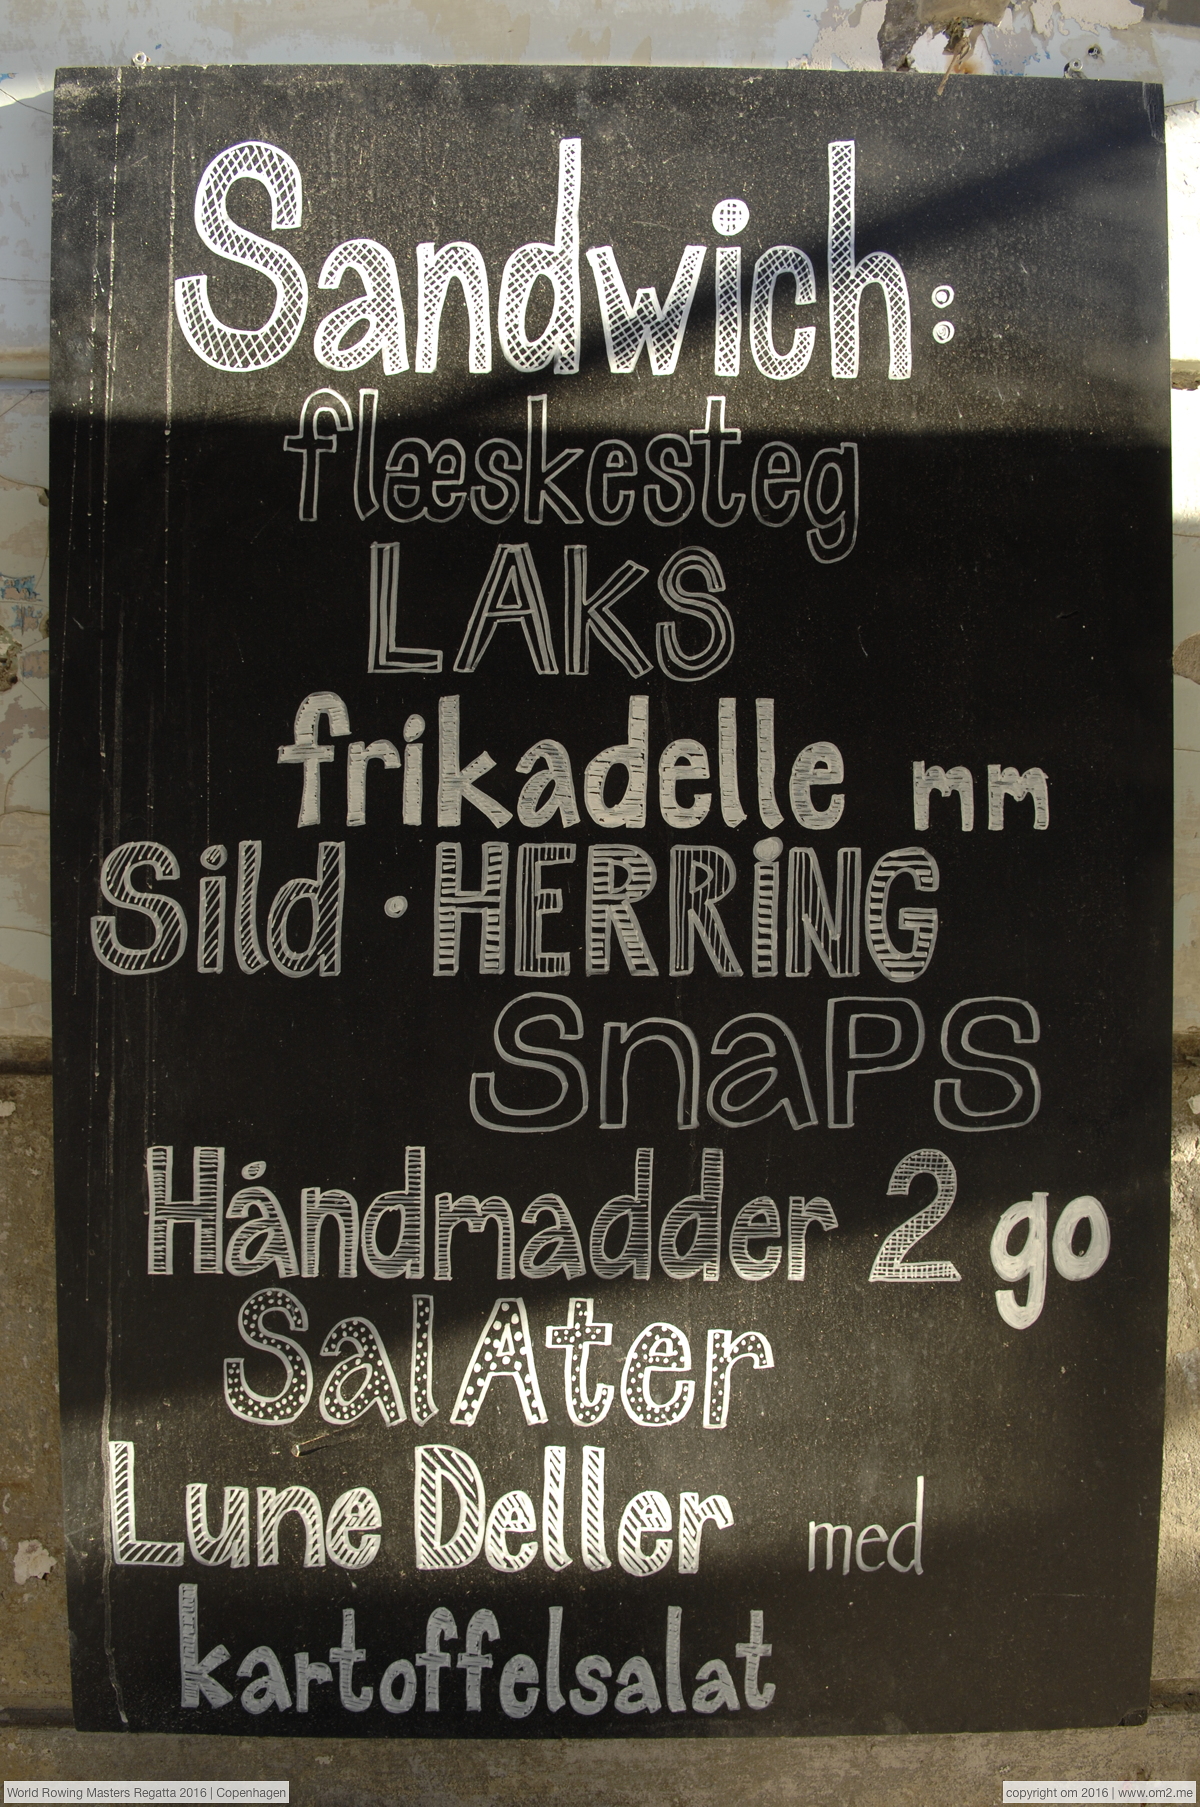 Sandwich:
flæskesteg
LAKS
frikadelle mm
Sild · HERRiNG
SnaPS
Håndmadder 2 go
SalAter
Lune Deller med
kartoffelsalat
World Rowing Masters Regatta 2016 | Copenhagen
copyright om 2016 | www.om2.me